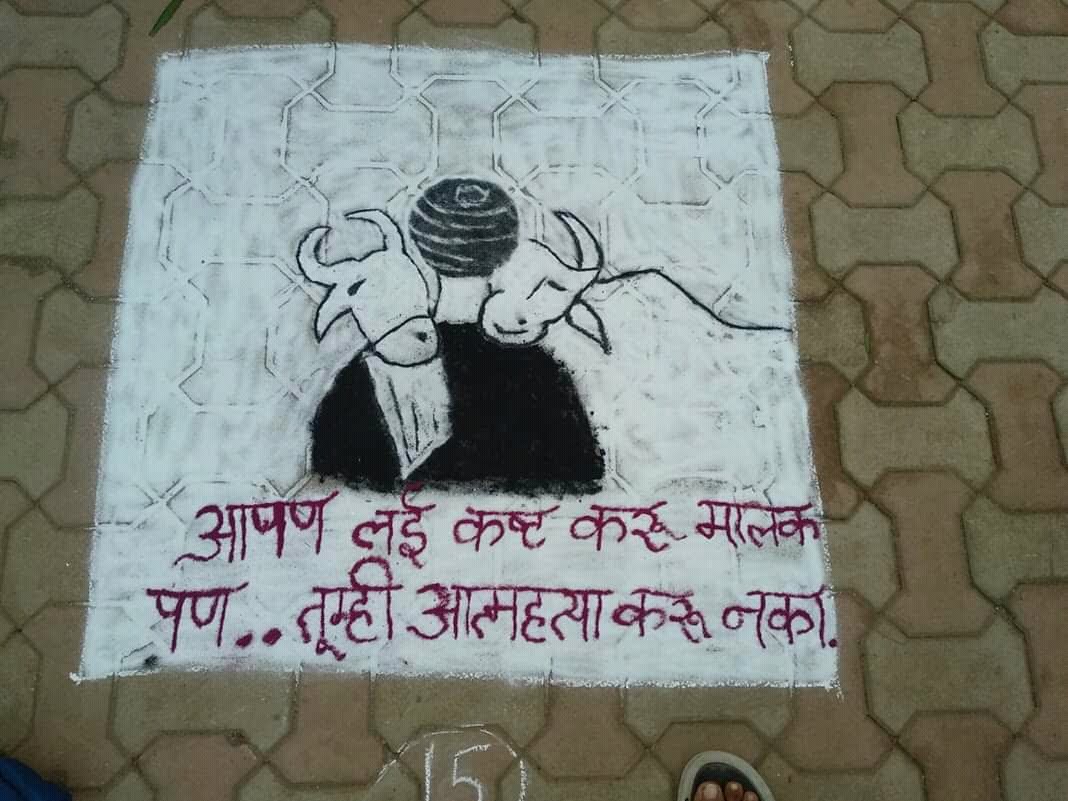 आपण लई कष्ट करू मालक
पण.. तूम्ही आत्महत्या करू नका.
15